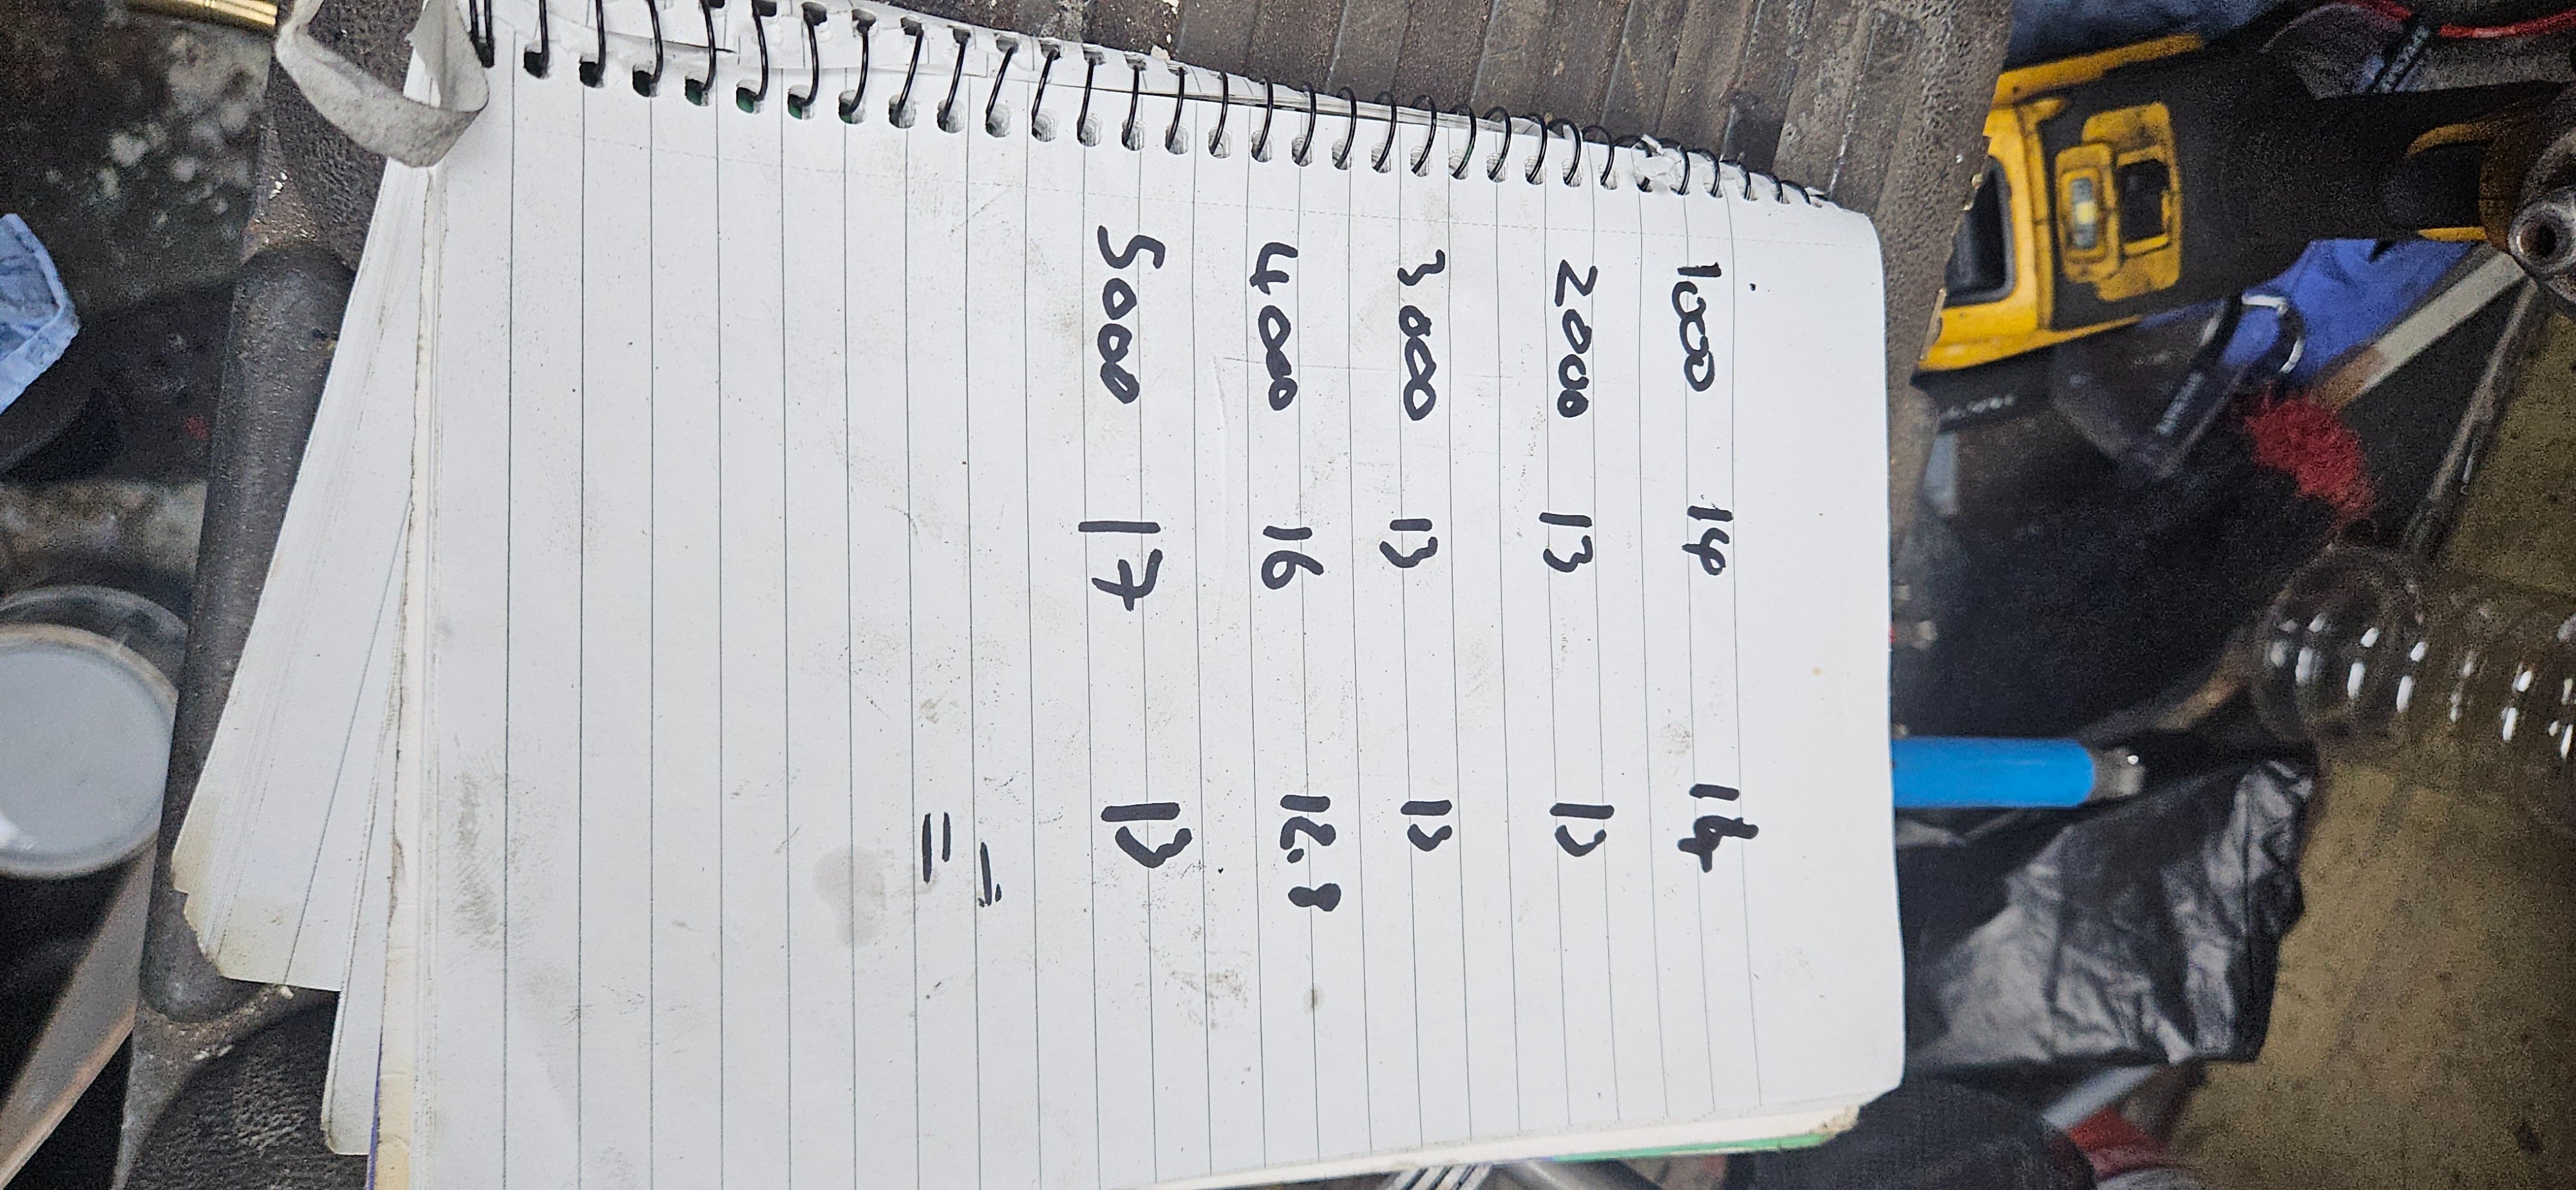 1000 14 14
2000 13 13
3000 13 13
4000 16 12.8
5000 17 13